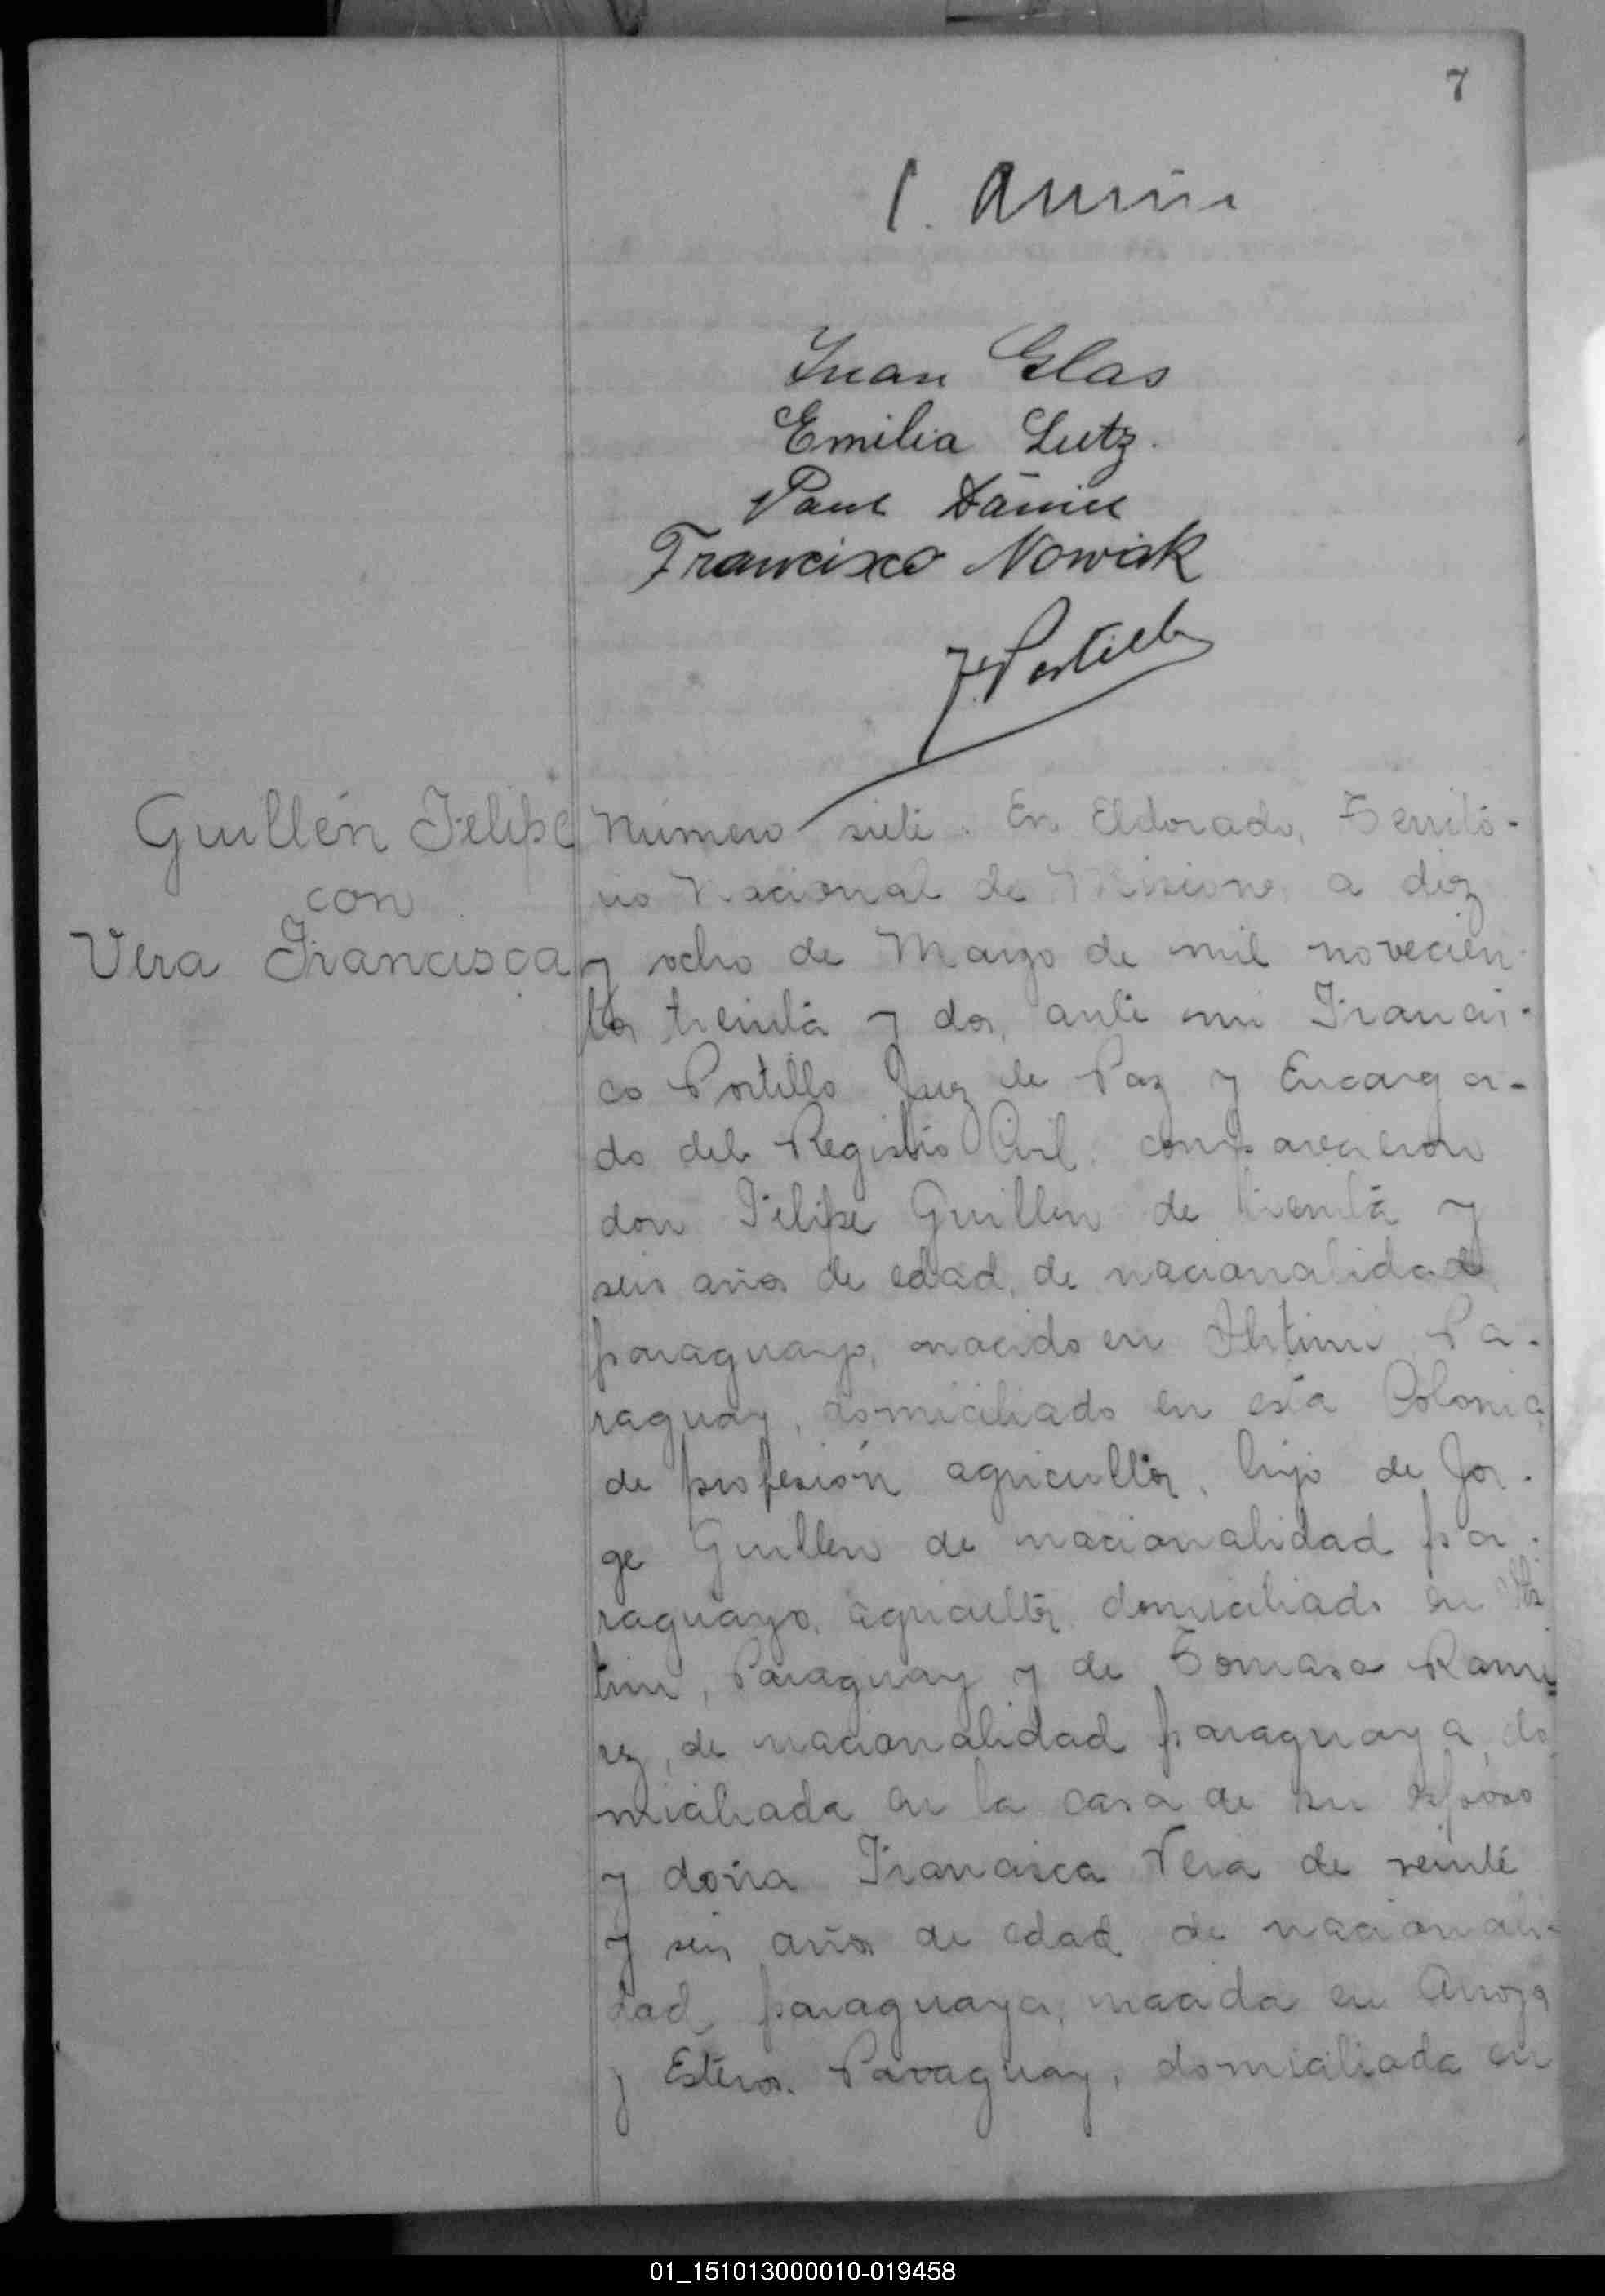 7
Juan Glas
Emilia Lutz.
Paul
Francisco Nowak
F. Portillo
Guillén Felipe
con
Vera Francisca
Número siete. En Eldorado, Territo-
rio Nacional de Misiones a diez
y ocho de Marzo de mil novecien-
tos treinta y dos, ante mi Francis-
co Portillo Juez de Paz y Encarga-
do del Registro Civil, comparecieron
don Felipe Guillen de treinta y
seis años de edad, de nacionalidad
paraguayo, nacido en Pa-
raguay, domiciliado en esta Colonia
de profesión agricultor, hijo de Jor-
ge Guillen de nacionalidad pa-
raguayo, agricultor domiciliado en
Paraguay y de Tomasa Rami=
rez, de nacionalidad paraguaya, do
miciliada en la casa de su esposo
y doña Francisca Vera de veinte
y seis años de edad de nacionali-
dad paraguaya, nacida en Arroyos
y Esteros. Paraguay, domiciliada en
01_151013000010-019458